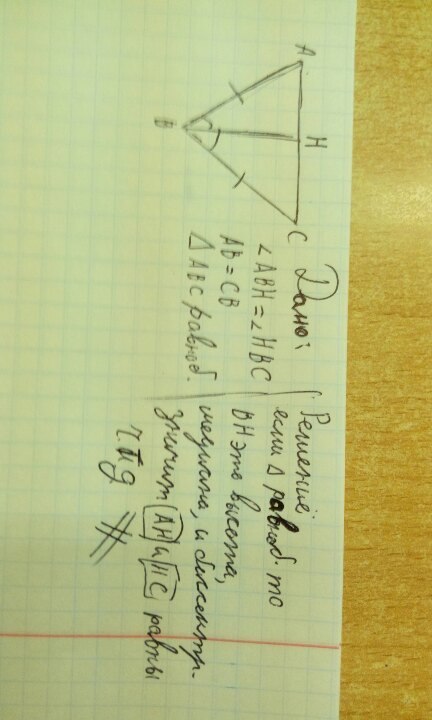 A
H
C
B
Дано:
∠ABH = ∠HBC
AB = CB
△ABC равноб.
Решение
если △ равноб. то
BH это высота,
медиана, и биссектр.
значит AH и HC равны
ч.т.д